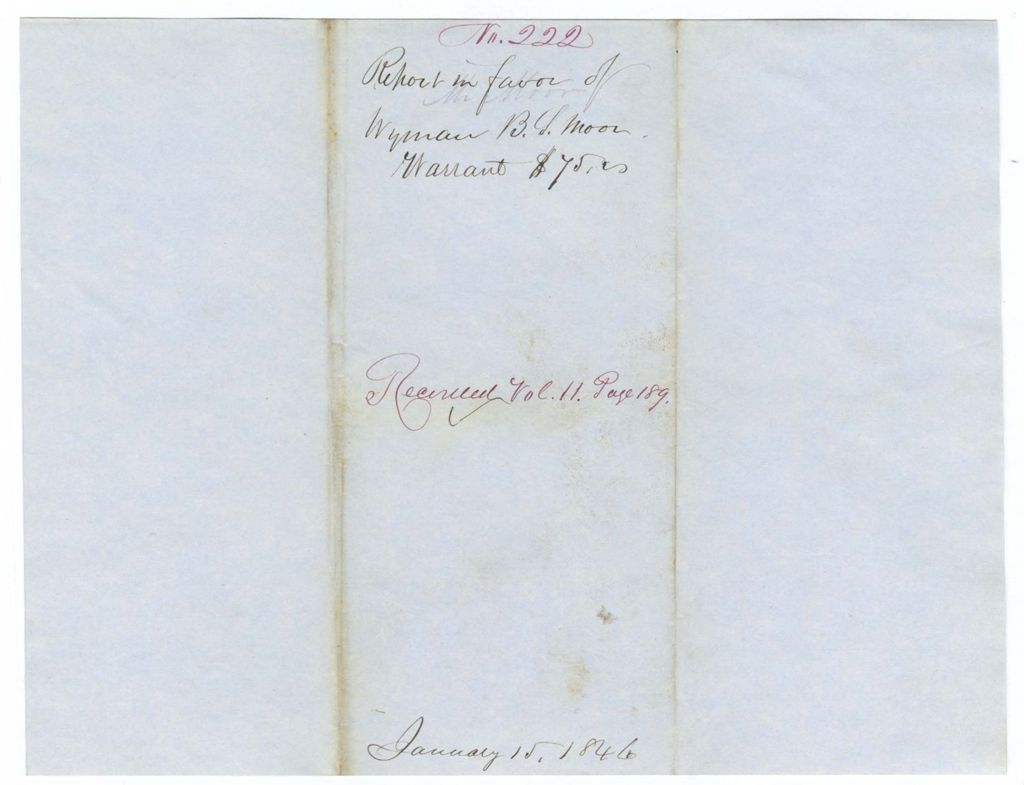 No. 222
Report in favor of
Wyman B. S. Moor.
Warrant $75,00
Recorded Vol. 11. Page 189.
January 15, 1846